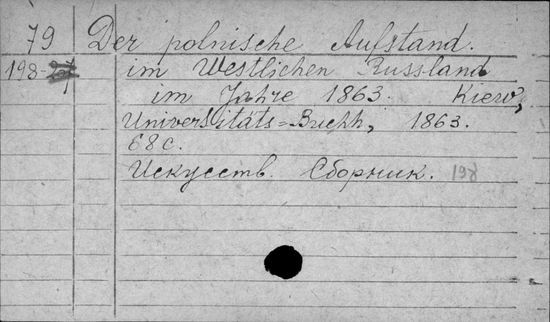 79 Der polnische Aufstand.
198-
im Westlichen Russland
im Jahre 1863. Kiew,
Universitäts=Buchh, 1863.
68 с.
Искусств. Сборник. 198